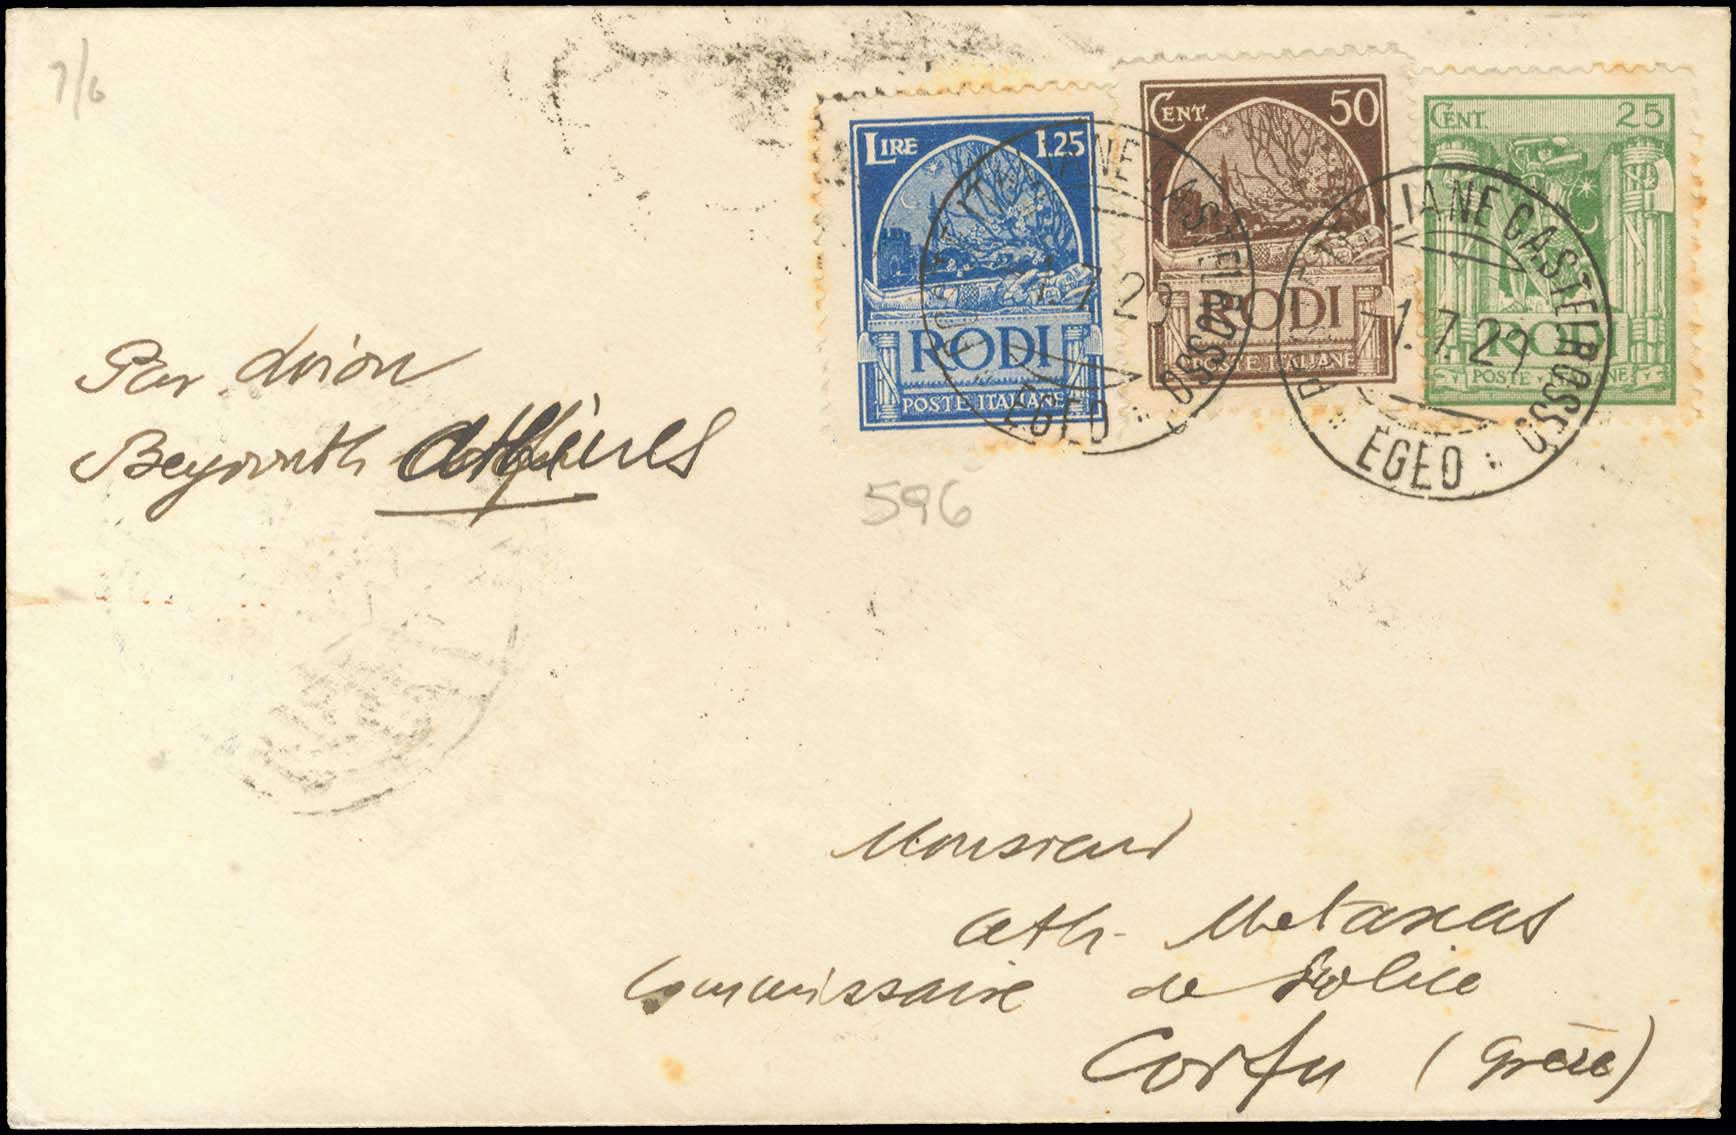 7/6
LIRE 1.25
RODI
POSTE ITALIANE
CENT. 50
RODI
POSTE ITALIANE
CENT. 25
RODI
POSTE ITALIANE
POSTE ITALIANE CASTELROSSO
1.7.29
EGEO
POSTE ITALIANE CASTELROSSO
1.7.29
EGEO
Par avion
Beyrouth Athènes
596
Monsieur
Ath. Metaxas
Commissaire de Police
Corfu (Grèce)